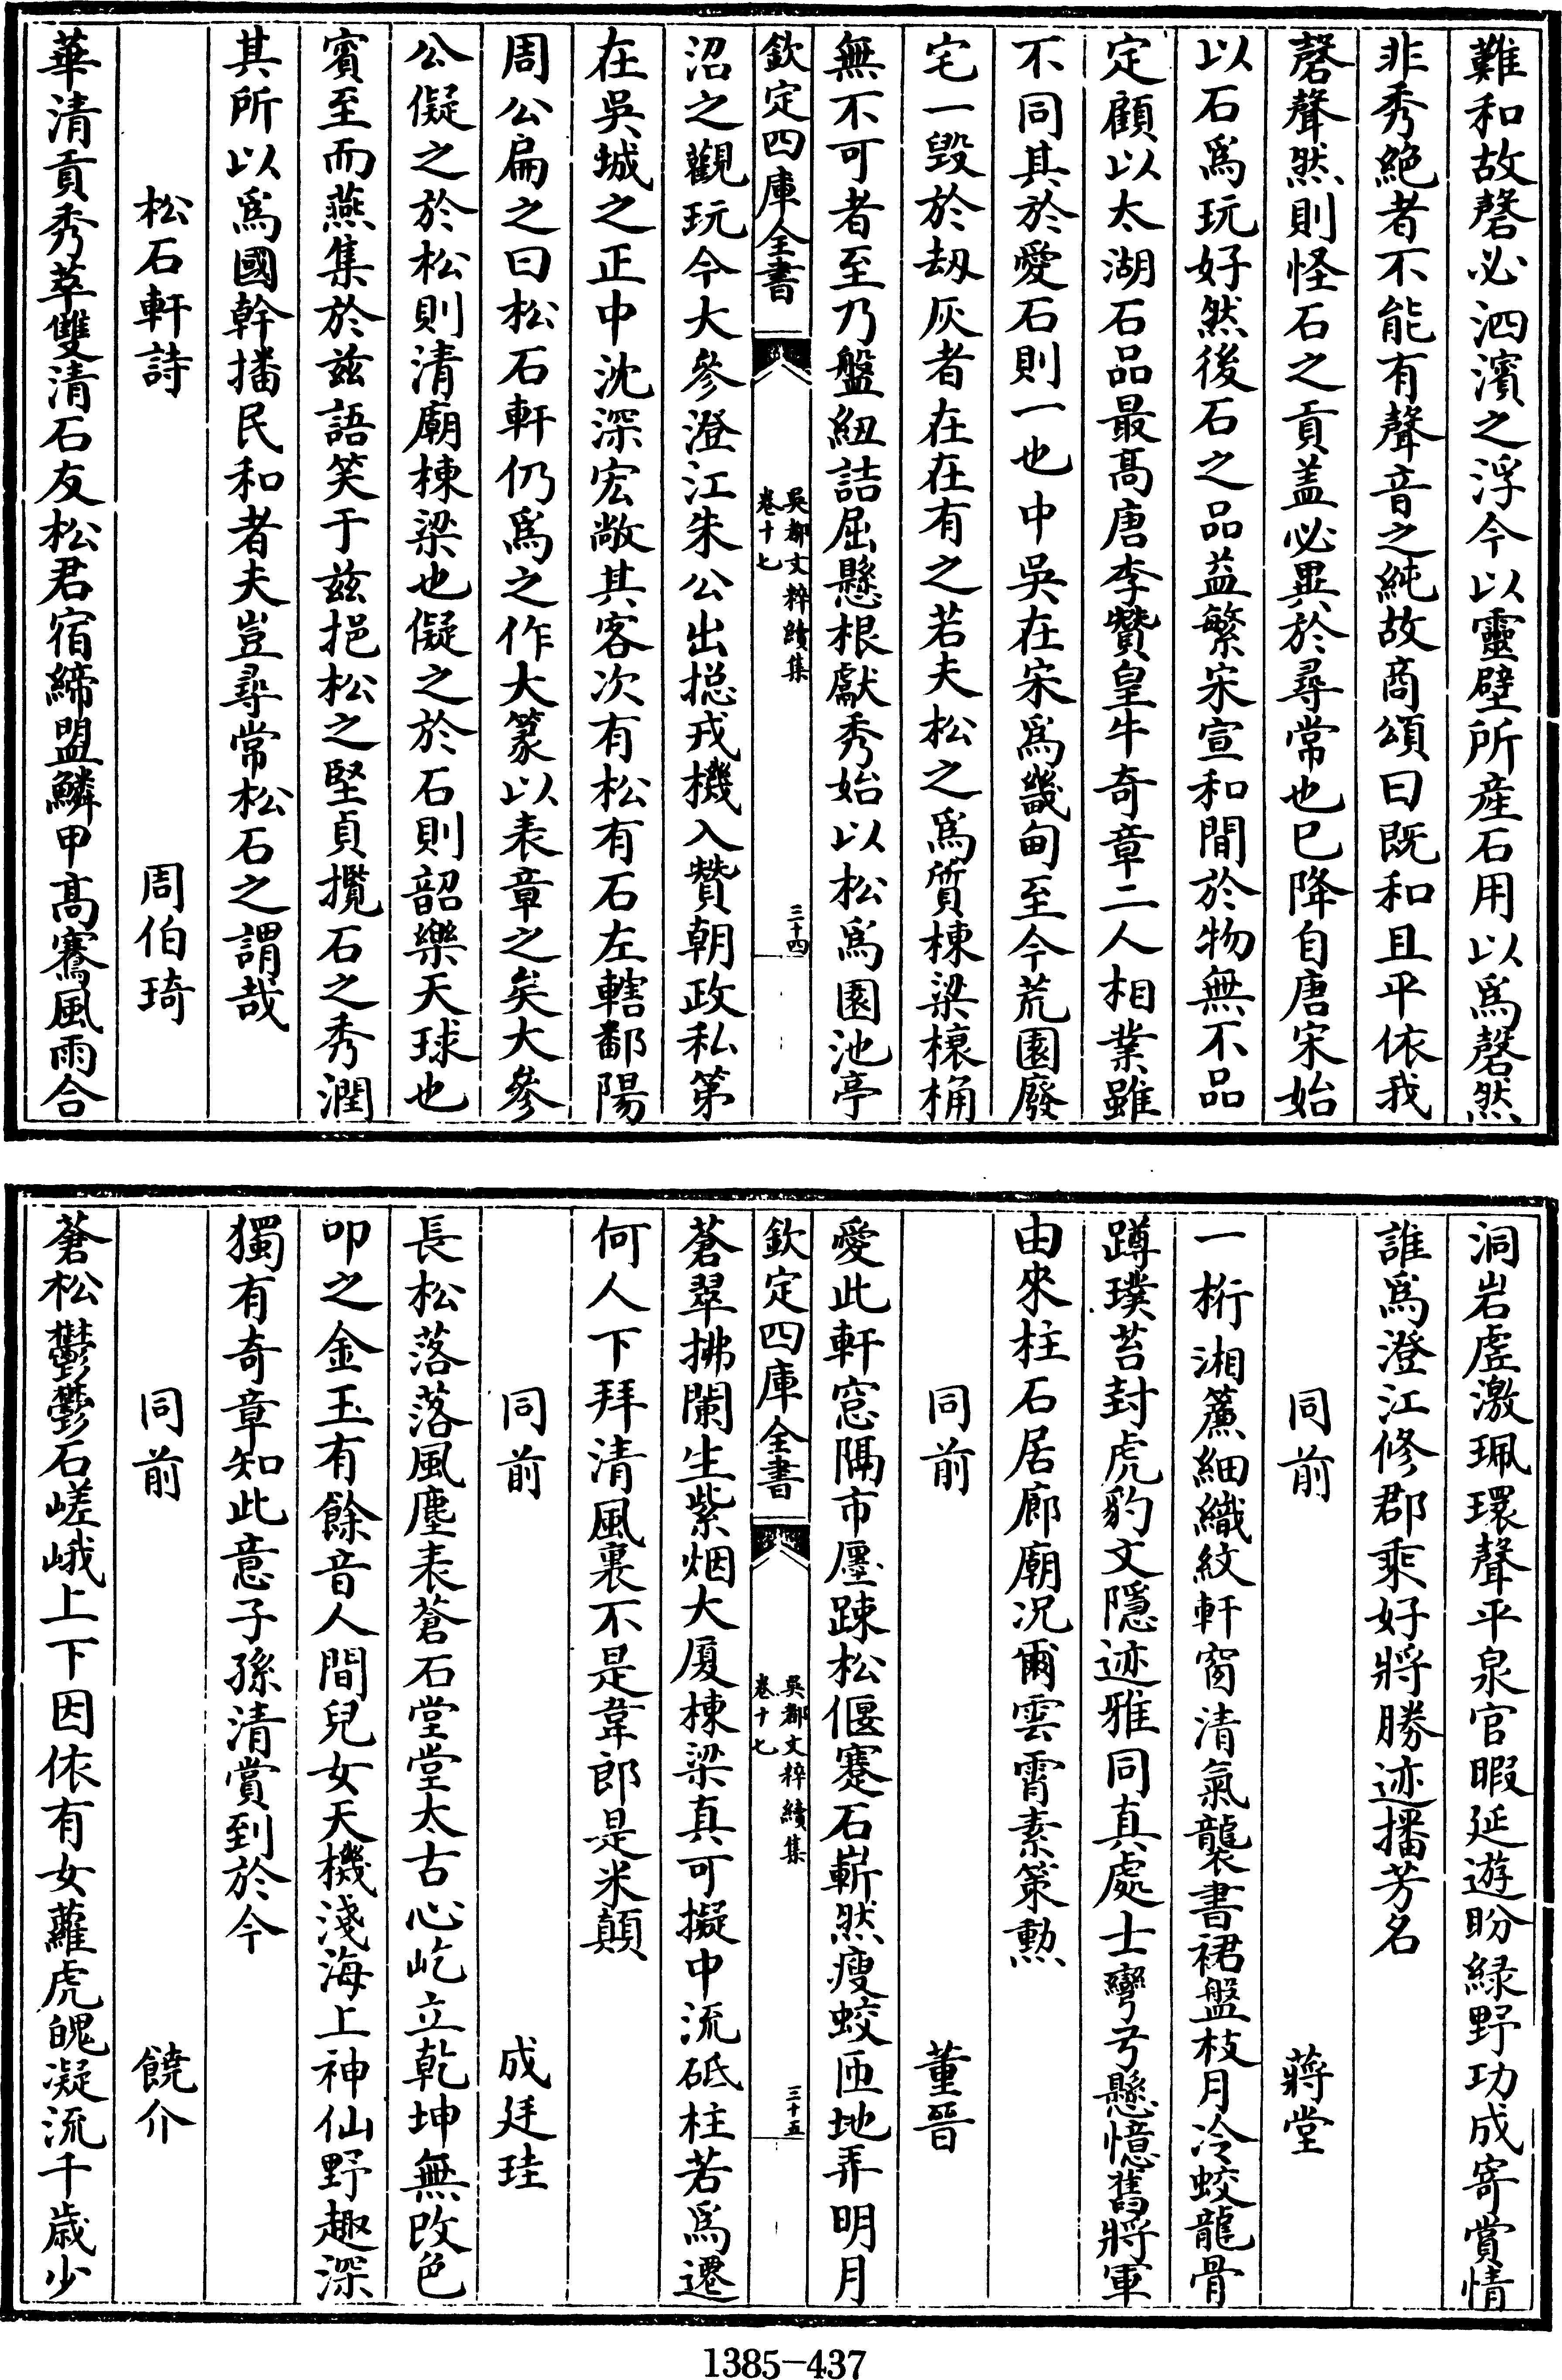 難和故磬必泗濱之浮今以靈壁所産石用以爲磬然
非秀絶者不能有聲音之純故商頌曰既和且平依我
磬聲然則怪石之貢盖必異於尋常也已降自唐宋始
以石爲玩好然後石之品益繁宋宣和間於物無不品
定顧以太湖石品最髙唐李贊皇牛奇章二人相業雖
不同其於愛石則一也中吳在宋爲畿甸至今荒園廢
宅一毀於刼灰者在在有之若夫松之爲質棟梁榱桷
無不可者至乃盤紐詰屈懸根獻秀始以松爲園池亭
欽定四庫全書
吳都文粹續集
卷十七
三十四
沼之觀玩今大參澄江朱公出摠戎機入贊朝政私第
在吳城之正中沈深宏敞其客次有松有石左轄鄱陽
周公扁之曰松石軒仍爲之作大篆以表章之矣大參
公儗之於松則清廟棟梁也儗之於石則韶樂天球也
賓至而燕集於兹語笑于兹挹松之堅貞攬石之秀潤
其所以爲國幹播民和者夫豈尋常松石之謂哉
松石軒詩
周伯琦
華清貢秀萃雙清石友松君宿締盟鱗甲髙騫風雨合
洞岩虚激珮環聲平泉官暇延遊盼緑野功成寄賞情
誰爲澄江修郡乘好將勝迹播芳名
同前
蔣堂
一桁湘簾細織紋軒窗清氣襲書裙盤枝月冷蛟龍骨
蹲璞苔封虎豹文隱迹雅同真處士彎弓懸憶舊將軍
由來柱石居廊廟况爾雲霄素策勲
同前
董晉
愛此軒窓隔市廛踈松偃蹇石嶄然瘦蛟匝地弄明月
欽定四庫全書
吳都文粹續集
卷十七
三十五
蒼翠拂闌生紫烟大厦棟梁真可擬中流砥柱若爲遷
何人下拜清風裏不是韋郎是米顛
同前
成廷珪
長松落落風塵表蒼石堂堂太古心屹立乾坤無改色
叩之金玉有餘音人間兒女天機淺海上神仙野趣深
獨有奇章知此意子孫清賞到於今
同前
饒介
蒼松鬱鬱石嵯峨上下因依有女蘿虎魄凝流千歲少
1385-437